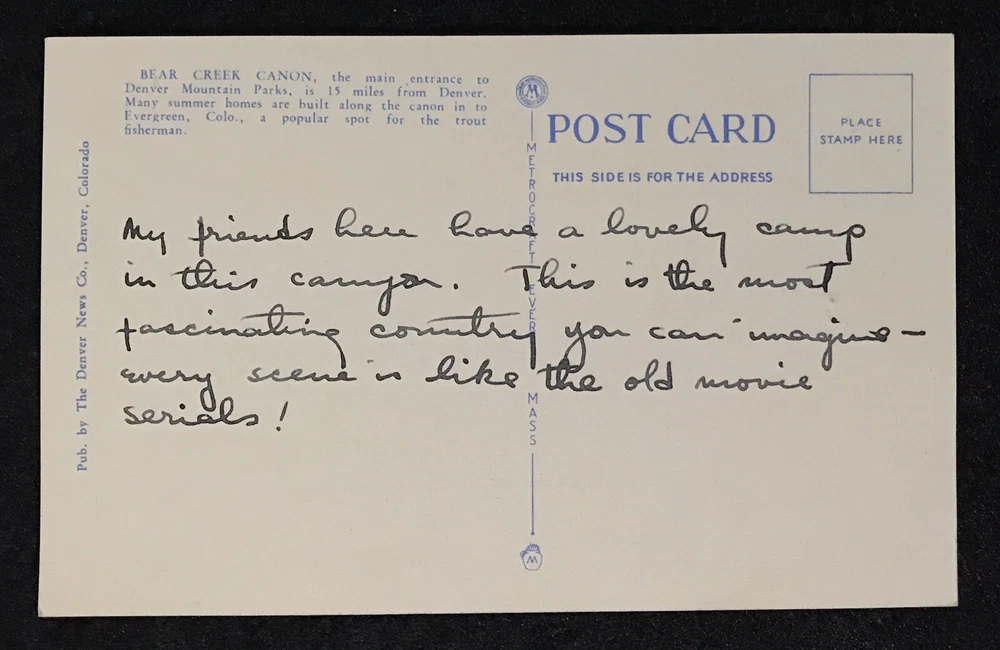 BEAR CREEK CANON, the main entrance to
Denver Mountain Parks, is 15 miles from Denver.
Many summer homes are built along the canon in to
Evergreen, Colo., a popular spot for the trout
fisherman.
POST CARD
THIS SIDE IS FOR THE ADDRESS
PLACE
STAMP HERE
Pub. by The Denver News Co., Denver, Colorado
METROCRAFT EVERETT MASS
My friends here have a lovely camp
in this canyon. This is the most
fascinating country you can imagine—
every scene is like the old movie
serials!